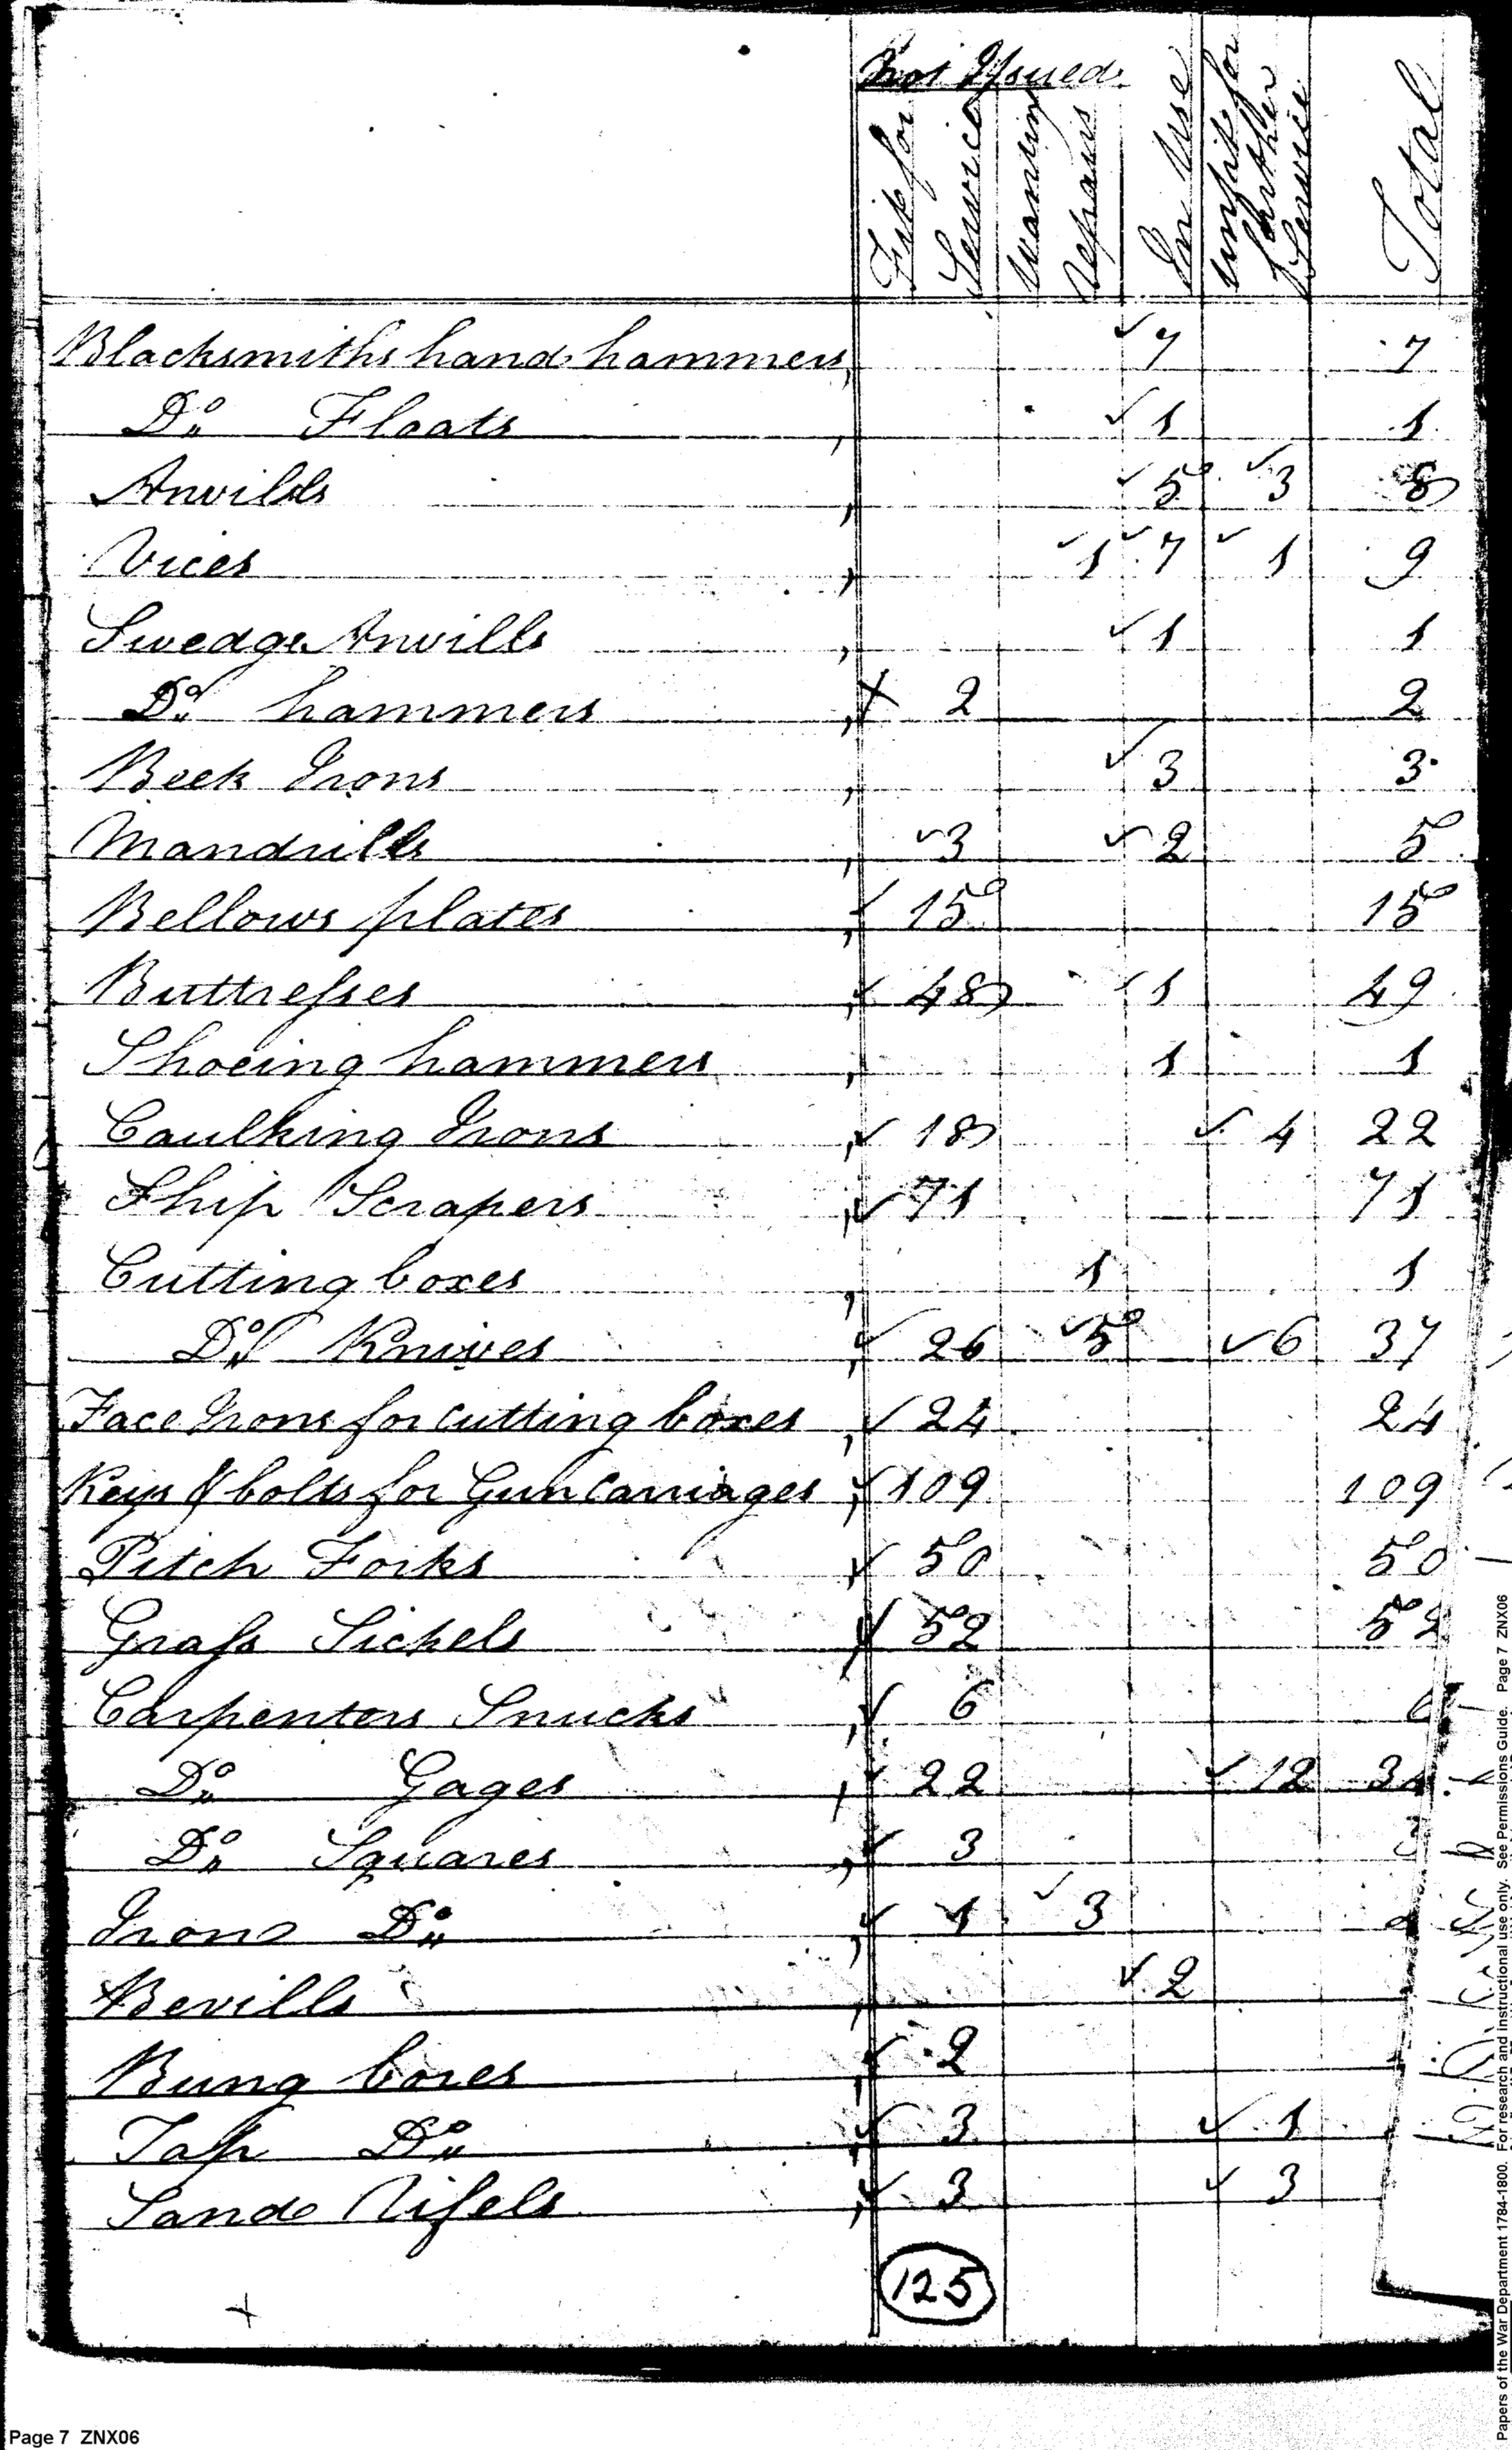 Not Issued
Fit for Service
Wanting repairs
In Use
Unfit for further Service
Total
Blacksmiths hand hammers, ✓7 7
Do. Floats, ✓1 1
Anvills, ✓5 ✓3 8
Vices, ✓1 ✓7 ✓1 9
Swedge Anvills, ✓1 1
Do. hammers, X 2 2
Beek Irons, ✓3 3
Mandrills, ✓3 ✓2 5
Bellows plates, ✓15 15
Buttresses, ✓48 ✓1 49
Shoeing hammers, 1 1
Caulking Irons, ✓18 ✓4 22
Ship Scrapers, ✓71 71
Cutting boxes, 1 1
Do. Knives, ✓26 ✓5 ✓6 37
Face Irons for cutting boxes, ✓24 24
Keys & bolts for Gun Carriages, ✓109 109
Pitch Forks, ✓50 50
Grass Sickels, ✓52 52
Carpenters ✓6 6
Do. Gages, ✓22 ✓12 34
Do. Squares, ✓3 3
Irons Do., ✓1 ✓3
Bevills, ✓2
Bung bores, ✓2
Tap Do., ✓3 ✓1
Sand ✓3 ✓3
125
+
Page 7 ZNX06
Papers of the War Department 1784-1800. For research and instructional use only. See Permissions Guide. Page 7 ZNX06